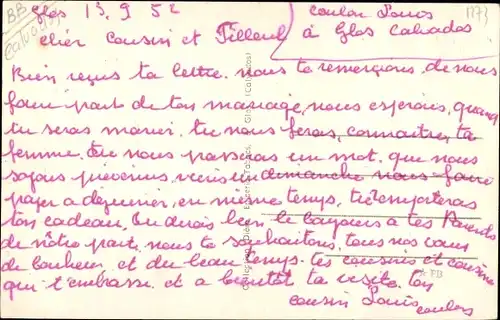 Glos 13.9 52
coulon Louis
cher cousin et Filleul
à Glos Calvados
Bien reçus ta lettre. nous te remerçions, de nous
faire part de ton mariage, nous esperons, quand
tu seras marier. tu nous feras, connaitre, ta
femme. tu nous passeras un mot. que nous
soyons prevenus, un dimanche nous faire
payer a déjeuner, en même temps, tu emporteras
ton cadeau, tu diras bien le bonjours a tes Parents
de nôtre part, nous te souhaitons, tous nos vœux
de bonheur, et du beau temps. tes cousins et cousine
qui t'embrasse. et a bientôt ta visite. ton
cousin Louis
coulon
BB
Calvados